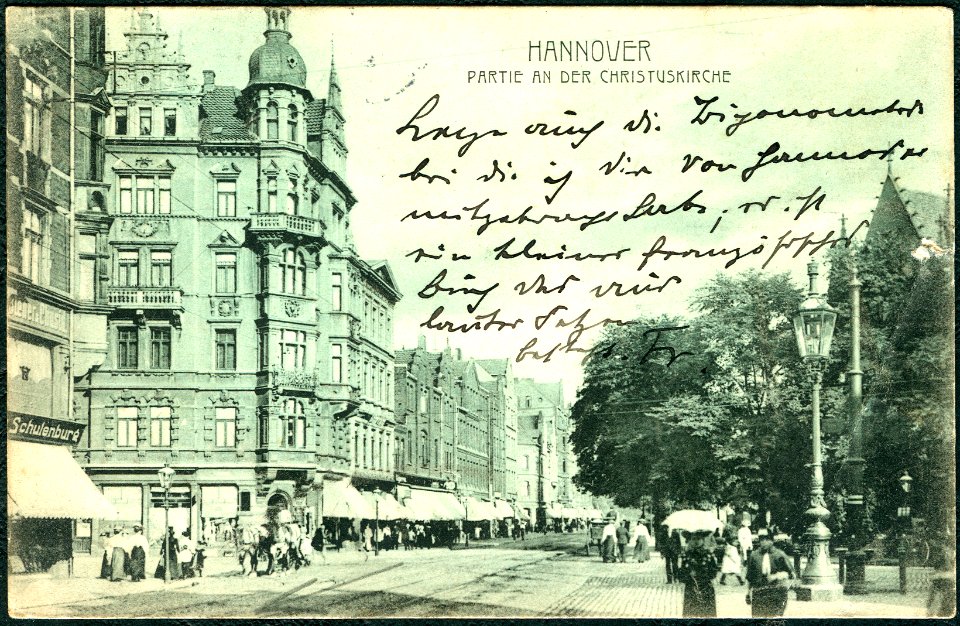 HANNOVER
PARTIE AN DER CHRISTUSKIRCHE
Lege auch die Trigonometrie
bei die ich dir von Hannover
mitgebracht habe, es ist
ein kleiner französischer
Buch das nur
lauter Sätzen
besteht. Fr
Schulenburg